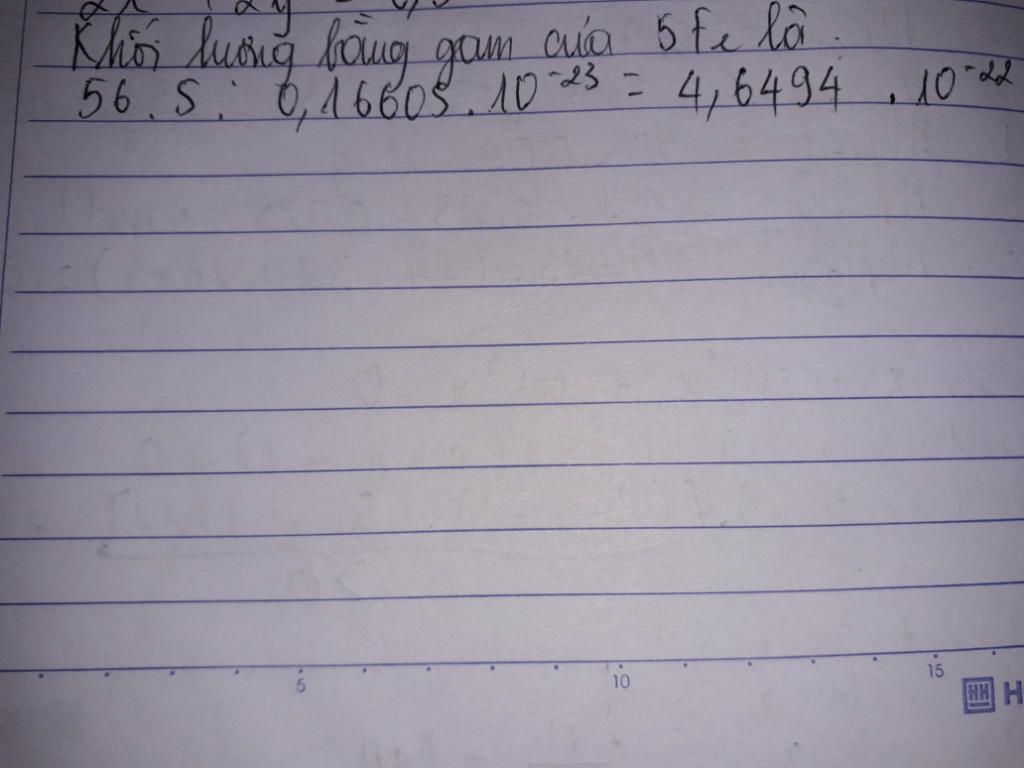 Khối lương bằng gam của 5 Fe là.
56. 5. 0,16605. 10⁻²³ = 4,6494 . 10⁻²²
5 10 15
HH H